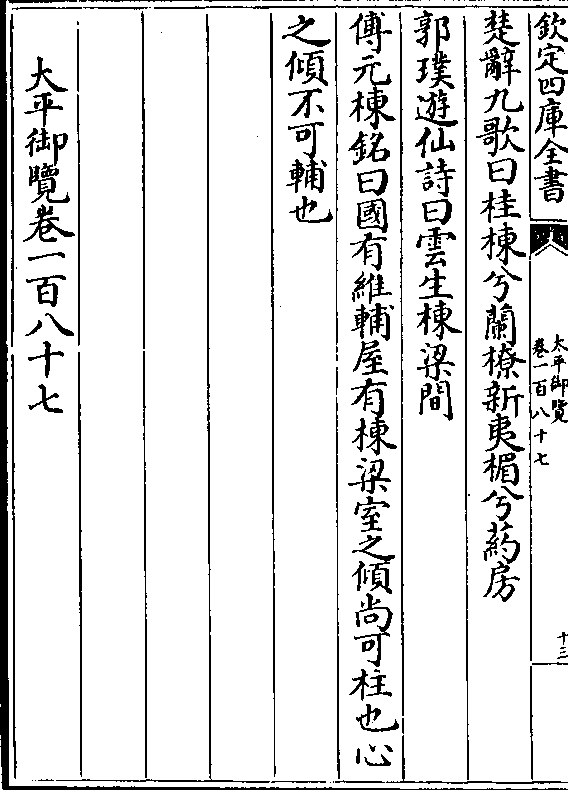 欽定四庫全書
太平御覽
卷一百八十七
十三
楚辭九歌曰桂棟兮蘭橑新夷楣兮葯房
郭璞遊仙詩曰雲生棟梁間
傅元棟銘曰國有維輔屋有棟梁室之傾尚可柱也心
之傾不可輔也
太平御覽卷一百八十七